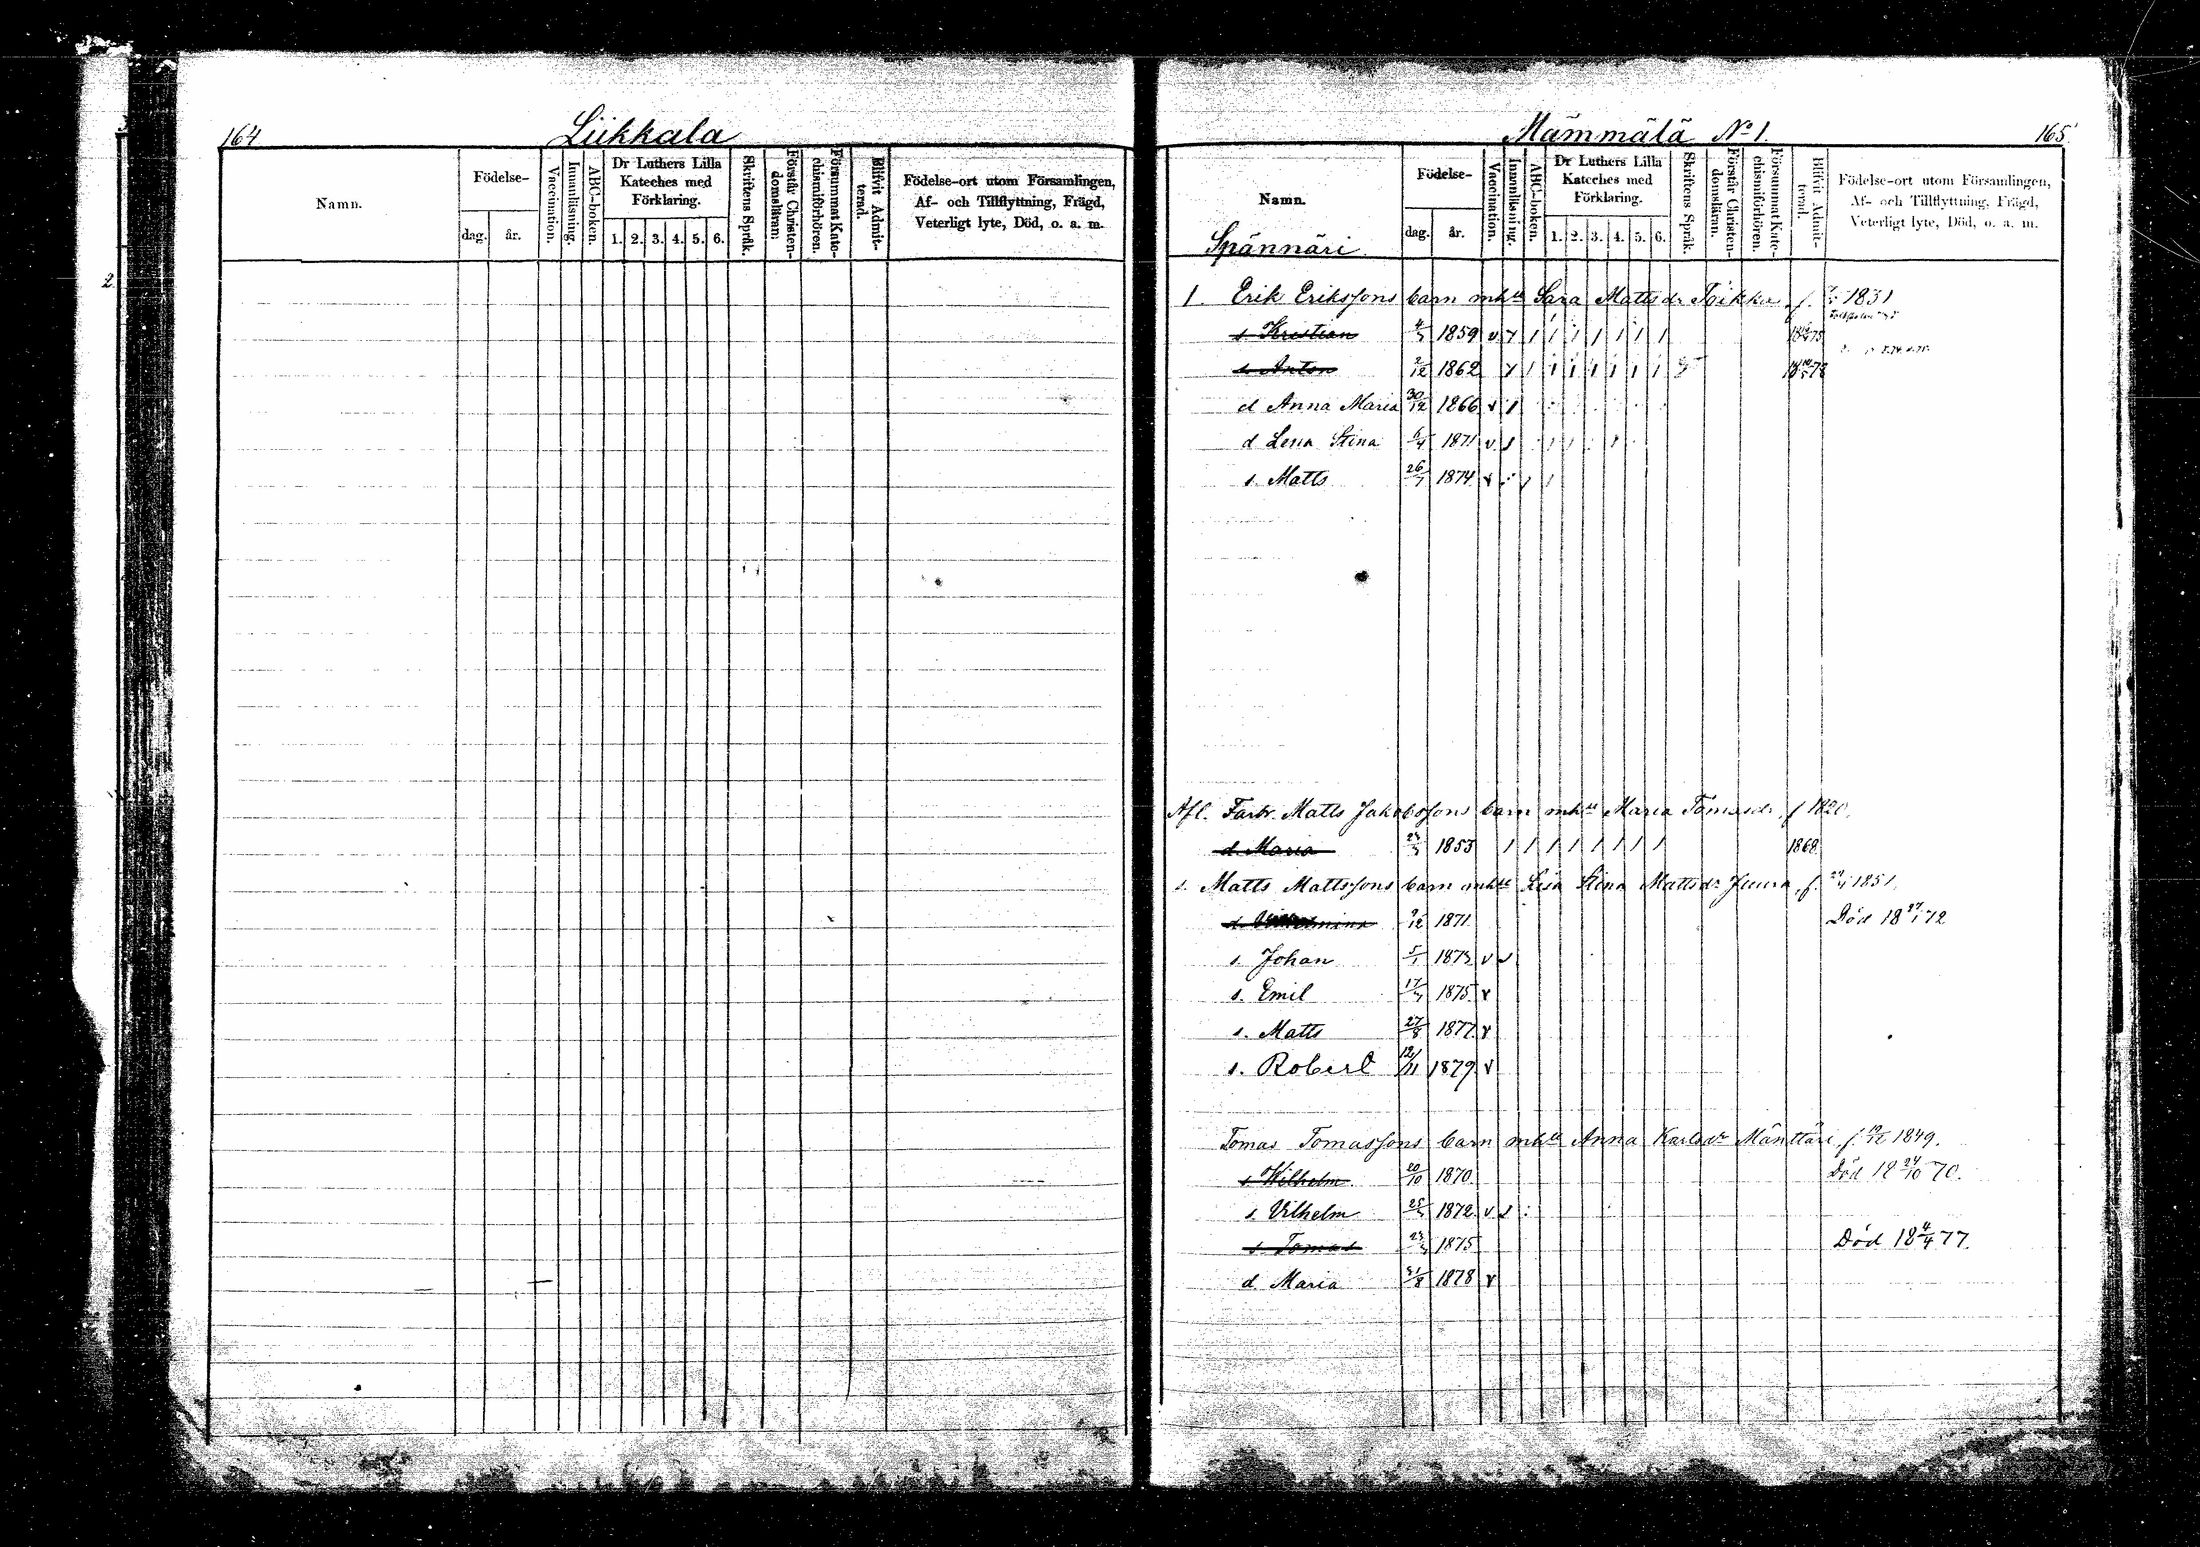 164 Liikkala
Namn.
Födelse-
dag. år.
Vaccination.
Innanläsning.
ABC-boken.
Dr Luthers Lilla
Kateches med
Förklaring.
1. 2. 3. 4. 5. 6.
Skriftens Språk.
Förstår Christen-
domsläran:
Försummat Kate-
chismiförhören.
Blifvit Admit-
terad.
Födelse-ort utom Församlingen,
Af- och Tillflyttning, Frägd,
Veterligt lyte, Död, o. a. m.
2
Mämmälä No 1. 165
Namn.
Spännäri
Födelse-
dag. år.
Vaccination.
Innanläsning.
ABC-boken.
Dr Luthers Lilla
Kateches med
Förklaring.
1. 2. 3. 4. 5. 6.
Skriftens Språk.
Förstår Christen-
domsläran.
Försummat Kate-
chismiförhören.
Blifvit Admit-
terad.
Födelse-ort utom Församlingen,
Af- och Tillflyttning, Frägd,
Veterligt lyte, Död, o. a. m.
1. Erik Erikssons barn mhu Sara Mattsdr Toikka, f. 1831
s. Kristian 1859 v
s. Anton 2/12 1862
d Anna Maria 30/12 1866 v
d Lena Stina 6/4 1871 v
s. Matts 1874 v
Afl. Farbr. Matts Jakobssons barn mhu Maria Tomasdr, f 1820.
d. Maria 1853 1868
s. Matts Mattssons barn mhu Lisa Stina Mattsdr Juura, f. 1851.
d. Vilhelmina 9/12 1871 Död 18 27/1 72
s. Johan 5/1 1873 v
s. Emil 1875 v
s. Matts 27/8 1877 v
s. Robert 12/11 1879 v
Tomas Tomassons barn mhu Anna Karlsdr Mänttäri, f. 1849.
s. Wilhelm 20/10 1870. Död 18 24/10 70.
s. Vilhelm 1872 v
s. Tomas 1875 Död 18 4/4 77.
d. Maria 31/8 1878 v